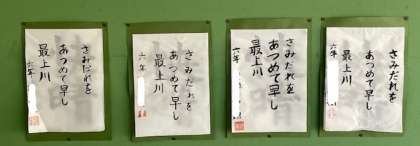 さみだれを
あつめて早し
最上川
六年
さみだれを
あつめて早し
最上川
六年
さみだれを
あつめて早し
最上川
六年
さみだれを
あつめて早し
最上川
六年